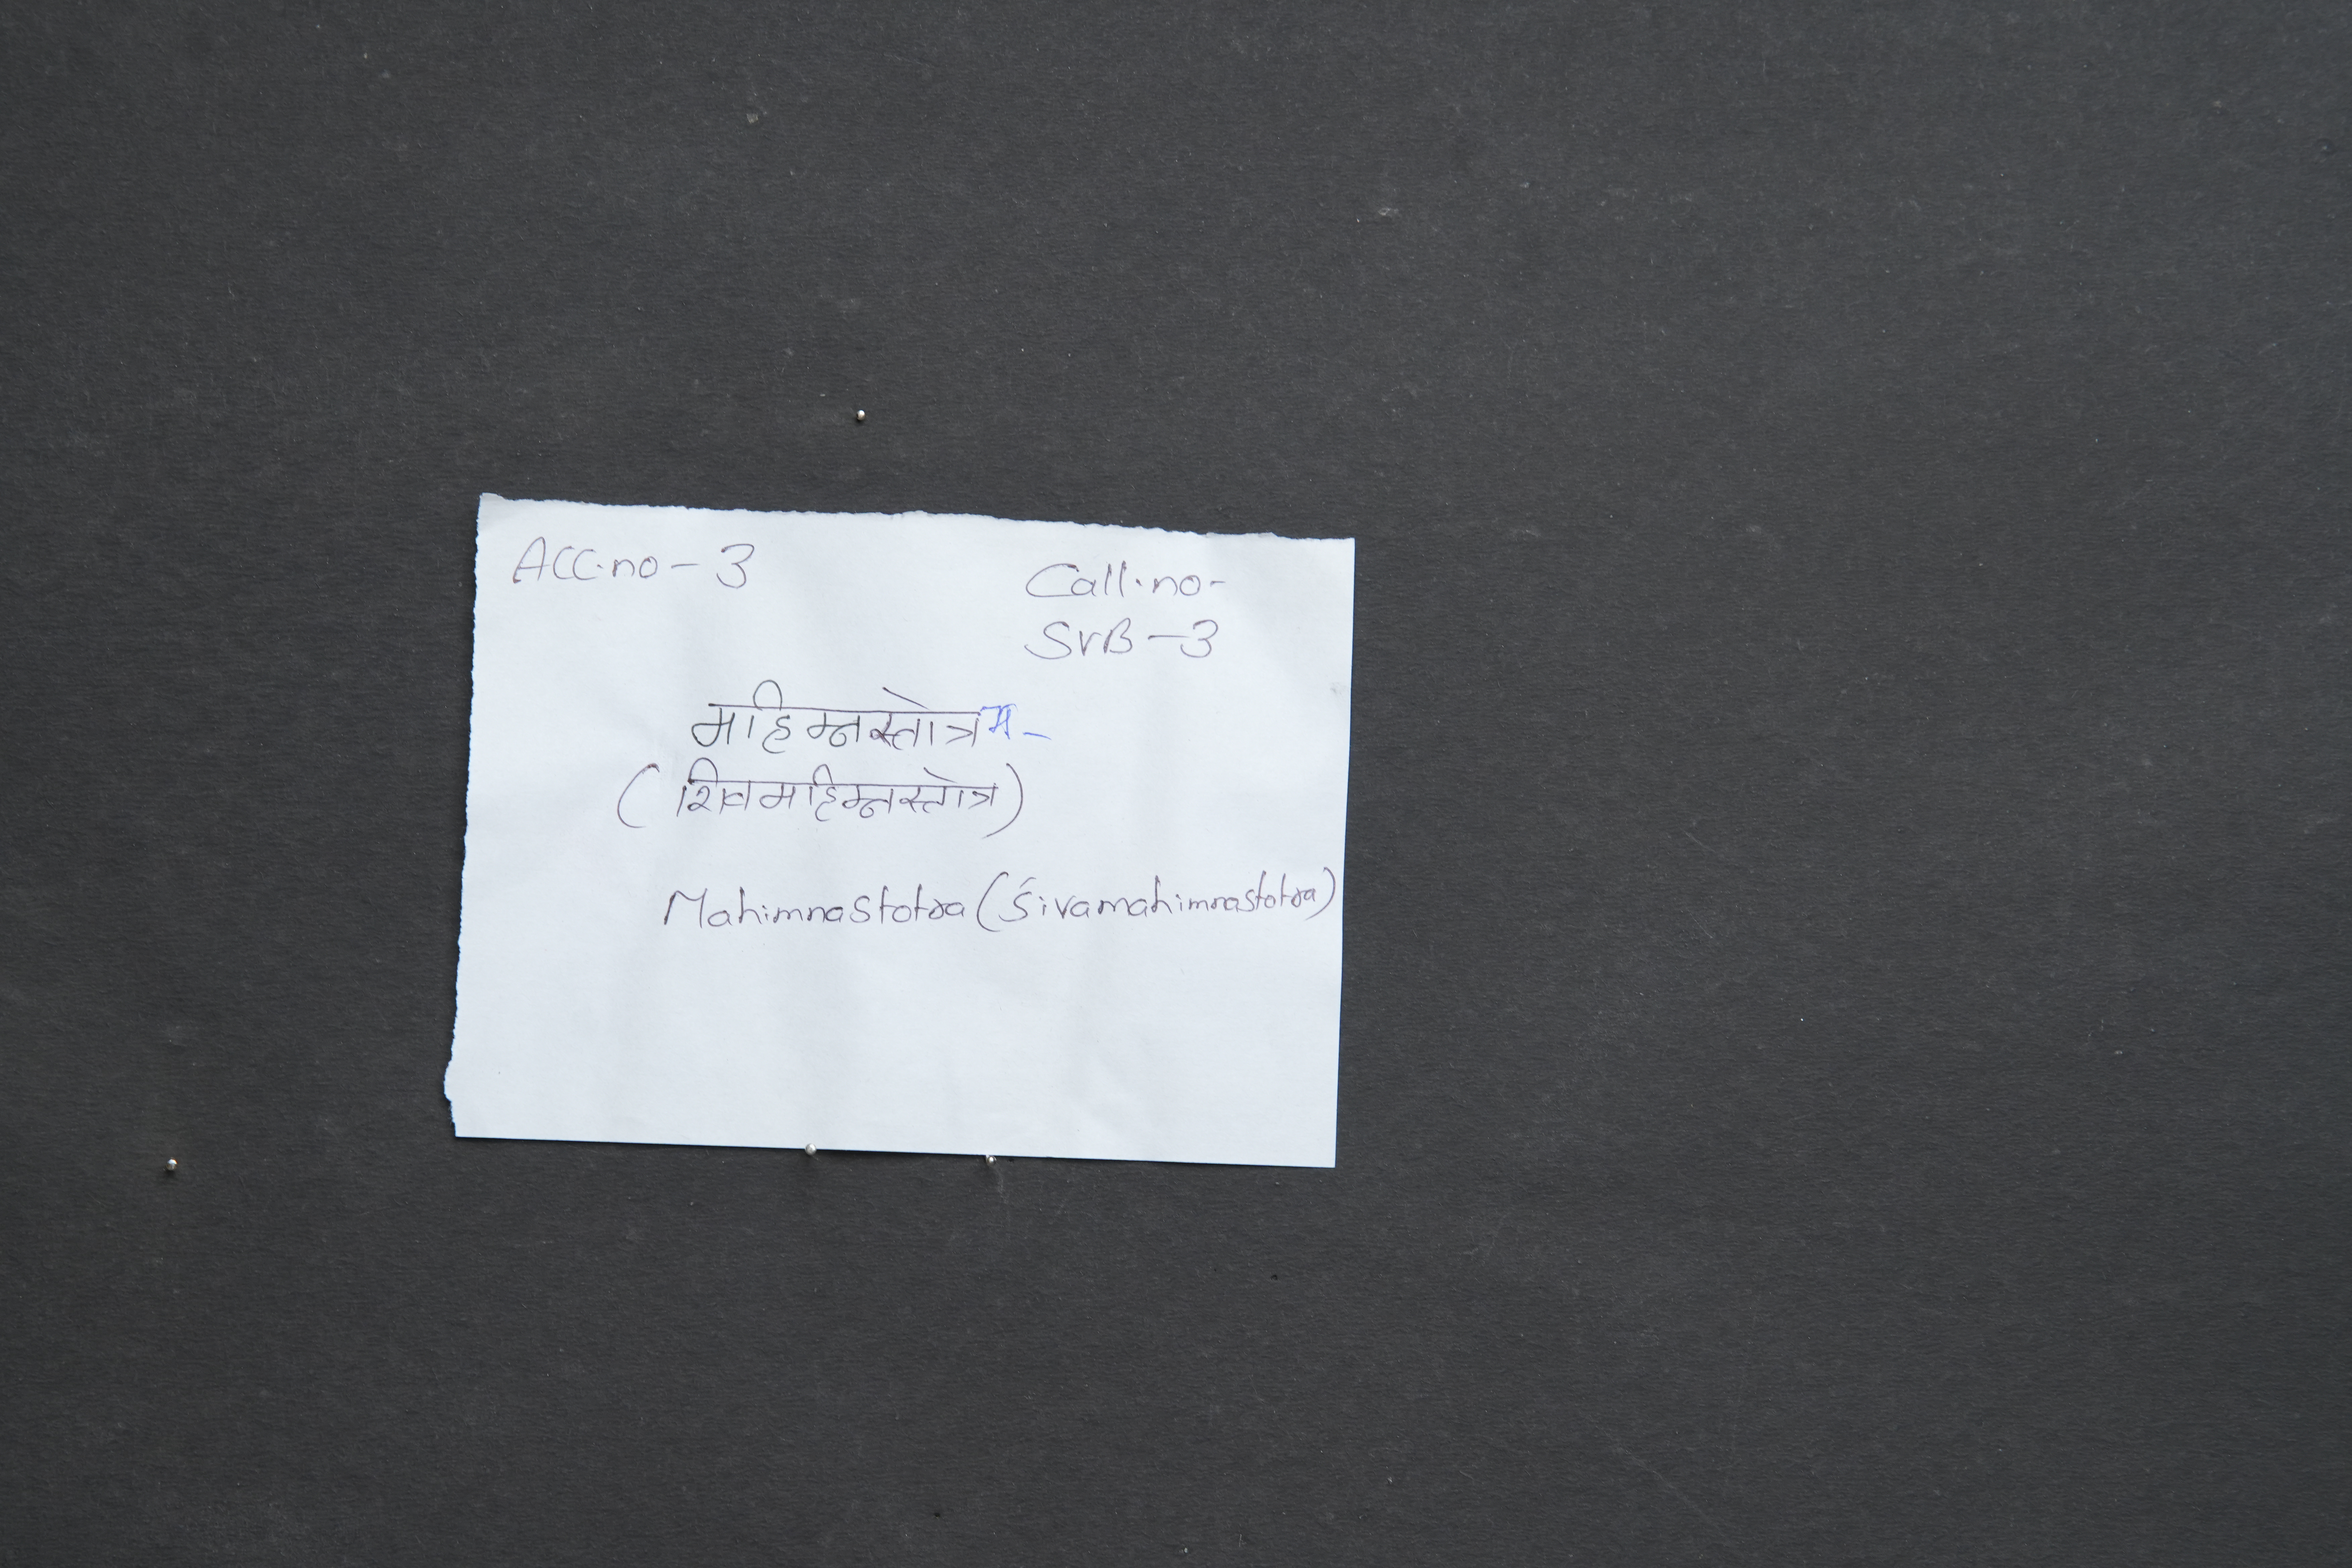 Acc.no - 3
Call.no-
SVB - 3
महिम्नस्तोत्रम्-
(शिवमहिम्नस्तोत्र)
Mahimnastotra (Śivamahimnastotra)